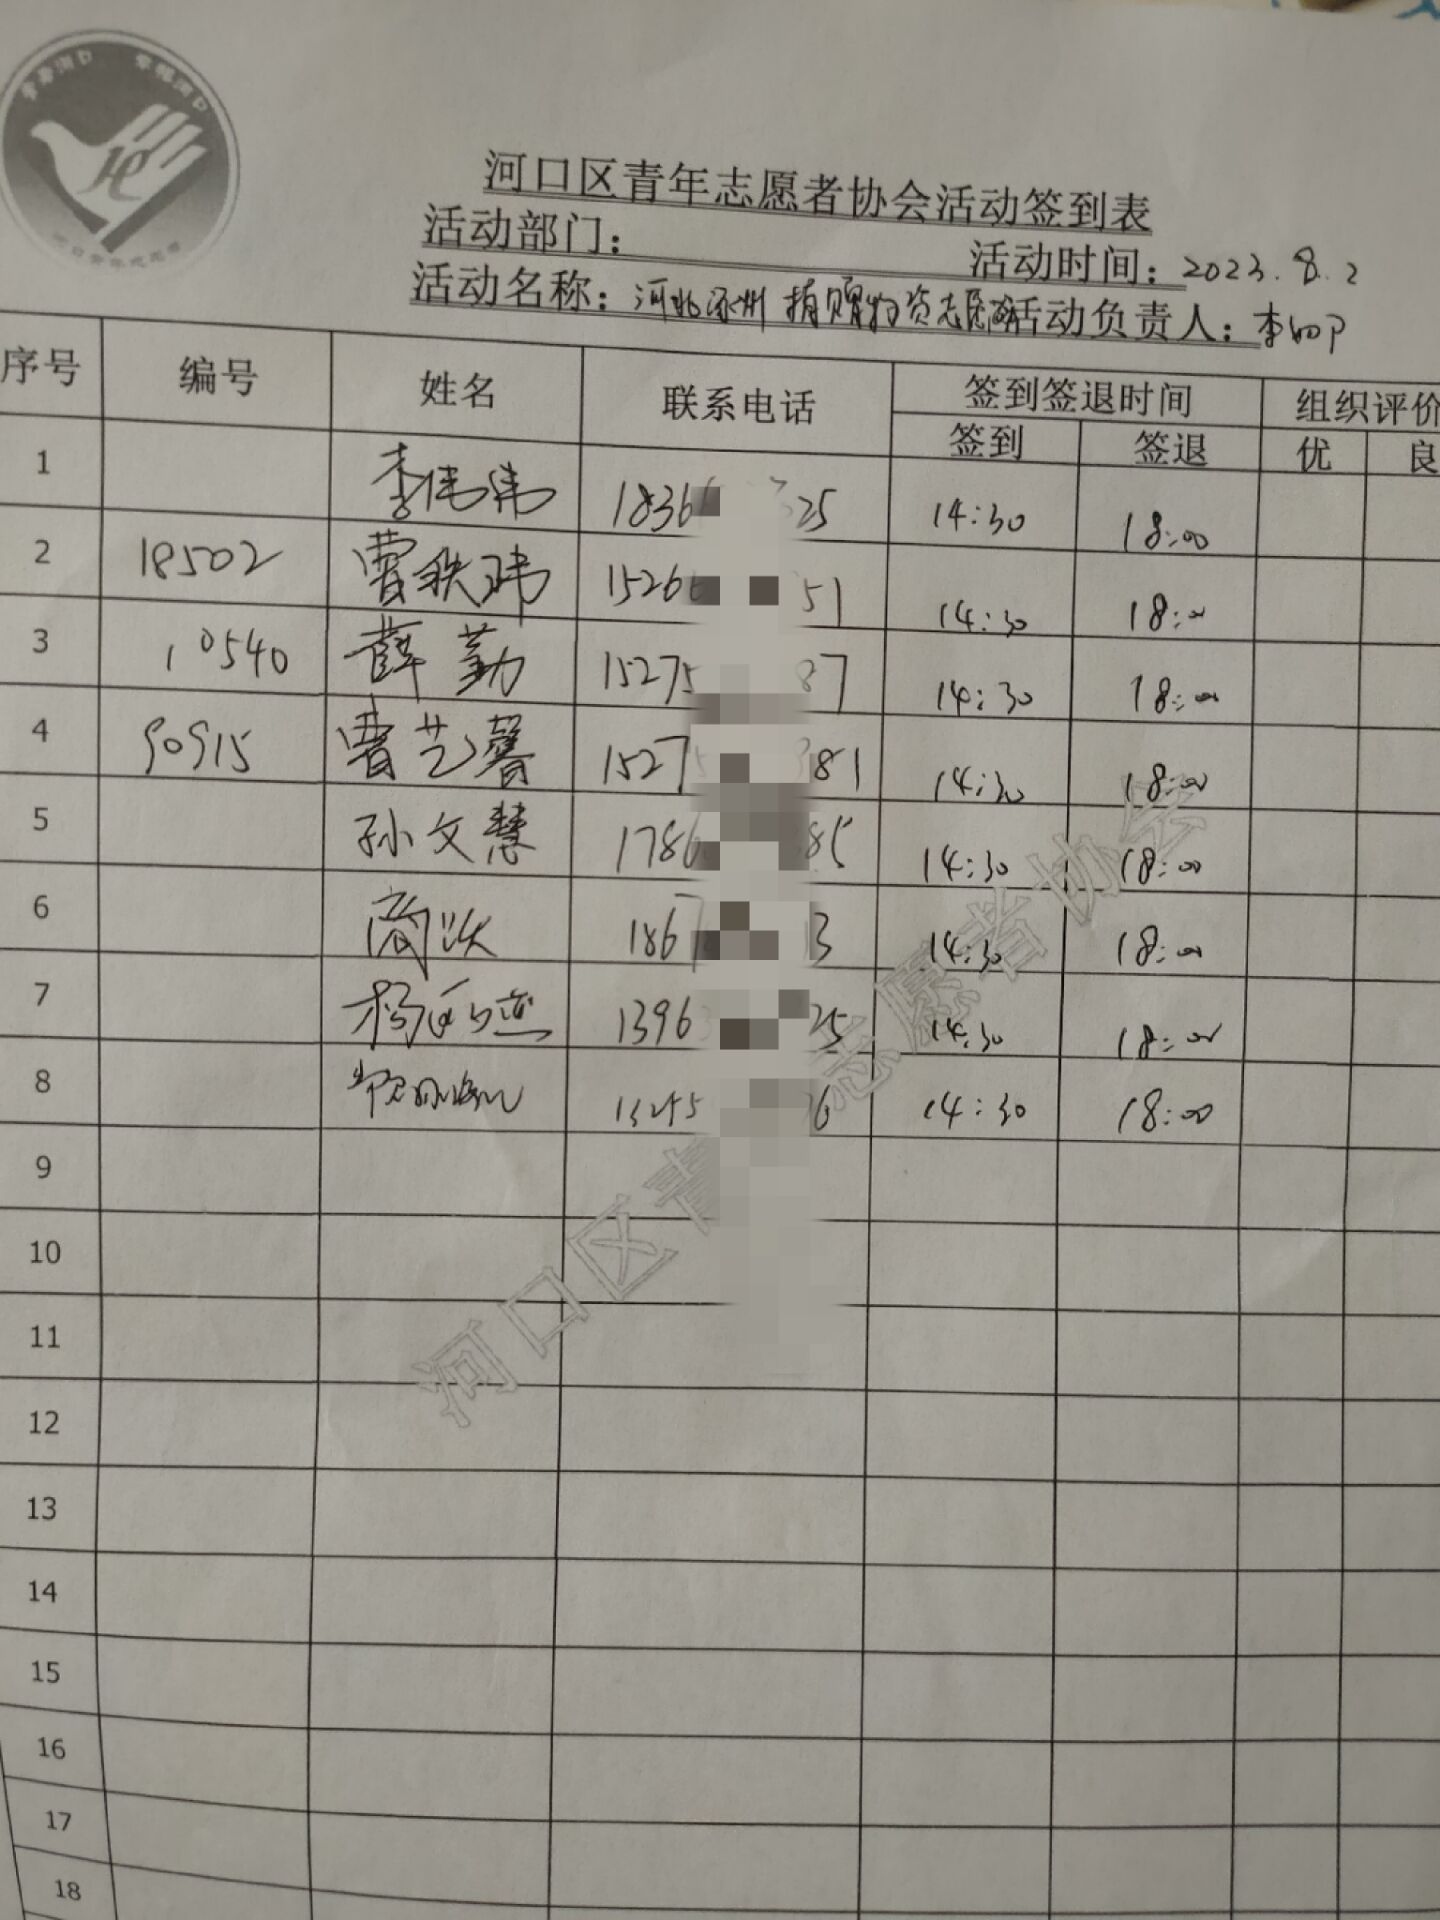 河口区青年志愿者协会活动签到表
活动部门： 活动时间：2023.8.2
活动名称：河北涿州 捐赠物资志愿 活动负责人：李
序号 编号 姓名 联系电话 签到签退时间 组织评价
签到 签退 优 良
1 李伟伟 1836 25 14:30 18:00
2 18502 曹轶玮 1526 51 14:30 18:00
3 10540 薛勤 15275 87 14:30 18:00
4 90915 曹艺馨 1527 81 14:30 18:00
5 孙文慧 1786 85 14:30 18:00
6 商沃 1867 13 14:30 18:00
7 杨 1396 25 14:30 18:00
8 13255 6 14:30 18:00
9
10
11
12
13
14
15
16
17
18
河口区青 志愿者协会